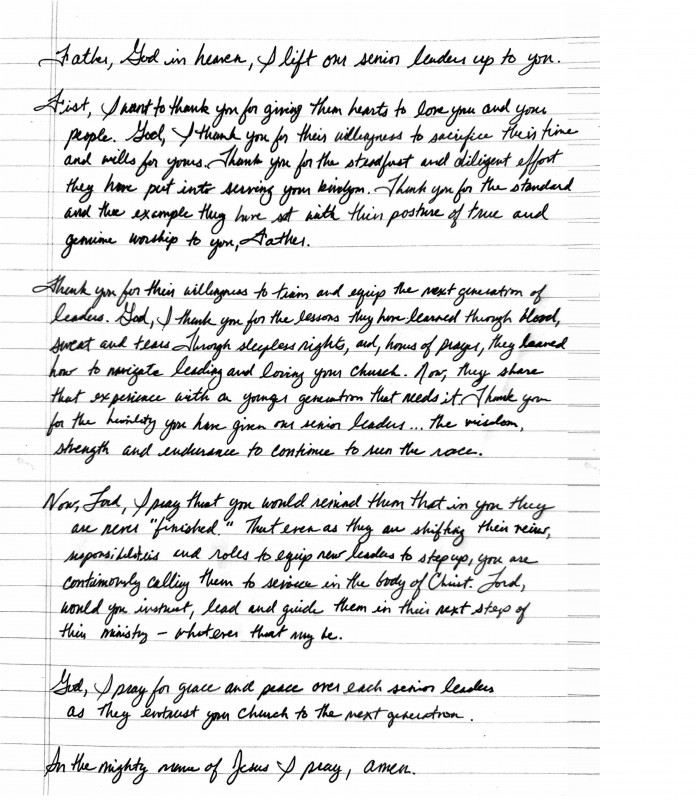 Father, God in heaven, I lift our senior leaders up to you.
Fist, I want to thank you for giving them hearts to love you and your
people. God, I thank you for their willingness to sacrifice their time
and wills for yours. Thank you for the steadfast and diligent effort
they have put into serving your kingdom. Thank you for the standard
and the example they have set with their posture of true and
genuine worship to you, Father.
Thank you for their willingness to train and equip the next generation of
leaders. God, I thank you for the lessons they have learned through blood,
sweat and tears. Through sleepless nights, and, hours of prayer, they learned
how to navigate leading and loving your church. Now, they share
that experience with a younger generation that needs it. Thank you
for the humility you have given our senior leaders... the wisdom,
strength and endurance to continue to run the race.
Now, Lord, I pray that you would remind them that in you they
are never "finished." That even as they are shifting their
responsibilities and roles to equip new leaders to step up, you are
continuously calling them to service in the body of Christ. Lord,
would you instruct, lead and guide them in their next step of
their ministry - whatever that may be.
God, I pray for grace and peace over each senior leaders
as they entrust your church to the next generation.
In the mighty name of Jesus I pray, amen.